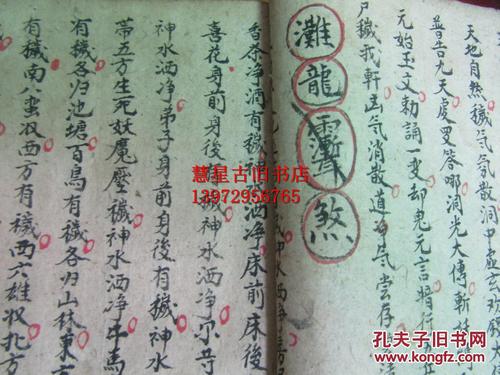 天地自然穢氣氛散洞中虛
普告九天處罗答哪洞光大傳斬
元始玉文勅誦一变却鬼元言暗行
尸穢我軒出氣消散道氣尝存
灘龍煞
香茶净酒有穢神洒净床前床後
喜花身前身後穢神水洒净尔
神水洒净弟子身前身後有穢神水
蒂五方生死妖魔壓穢神水洒净牛馬
有穢各归池塘百鳥有穢各归山林東方
有穢南八蛮收西方有穢西六雄收北方
慧星古旧书店
13972956765
孔夫子旧书网
www.kongfz.com